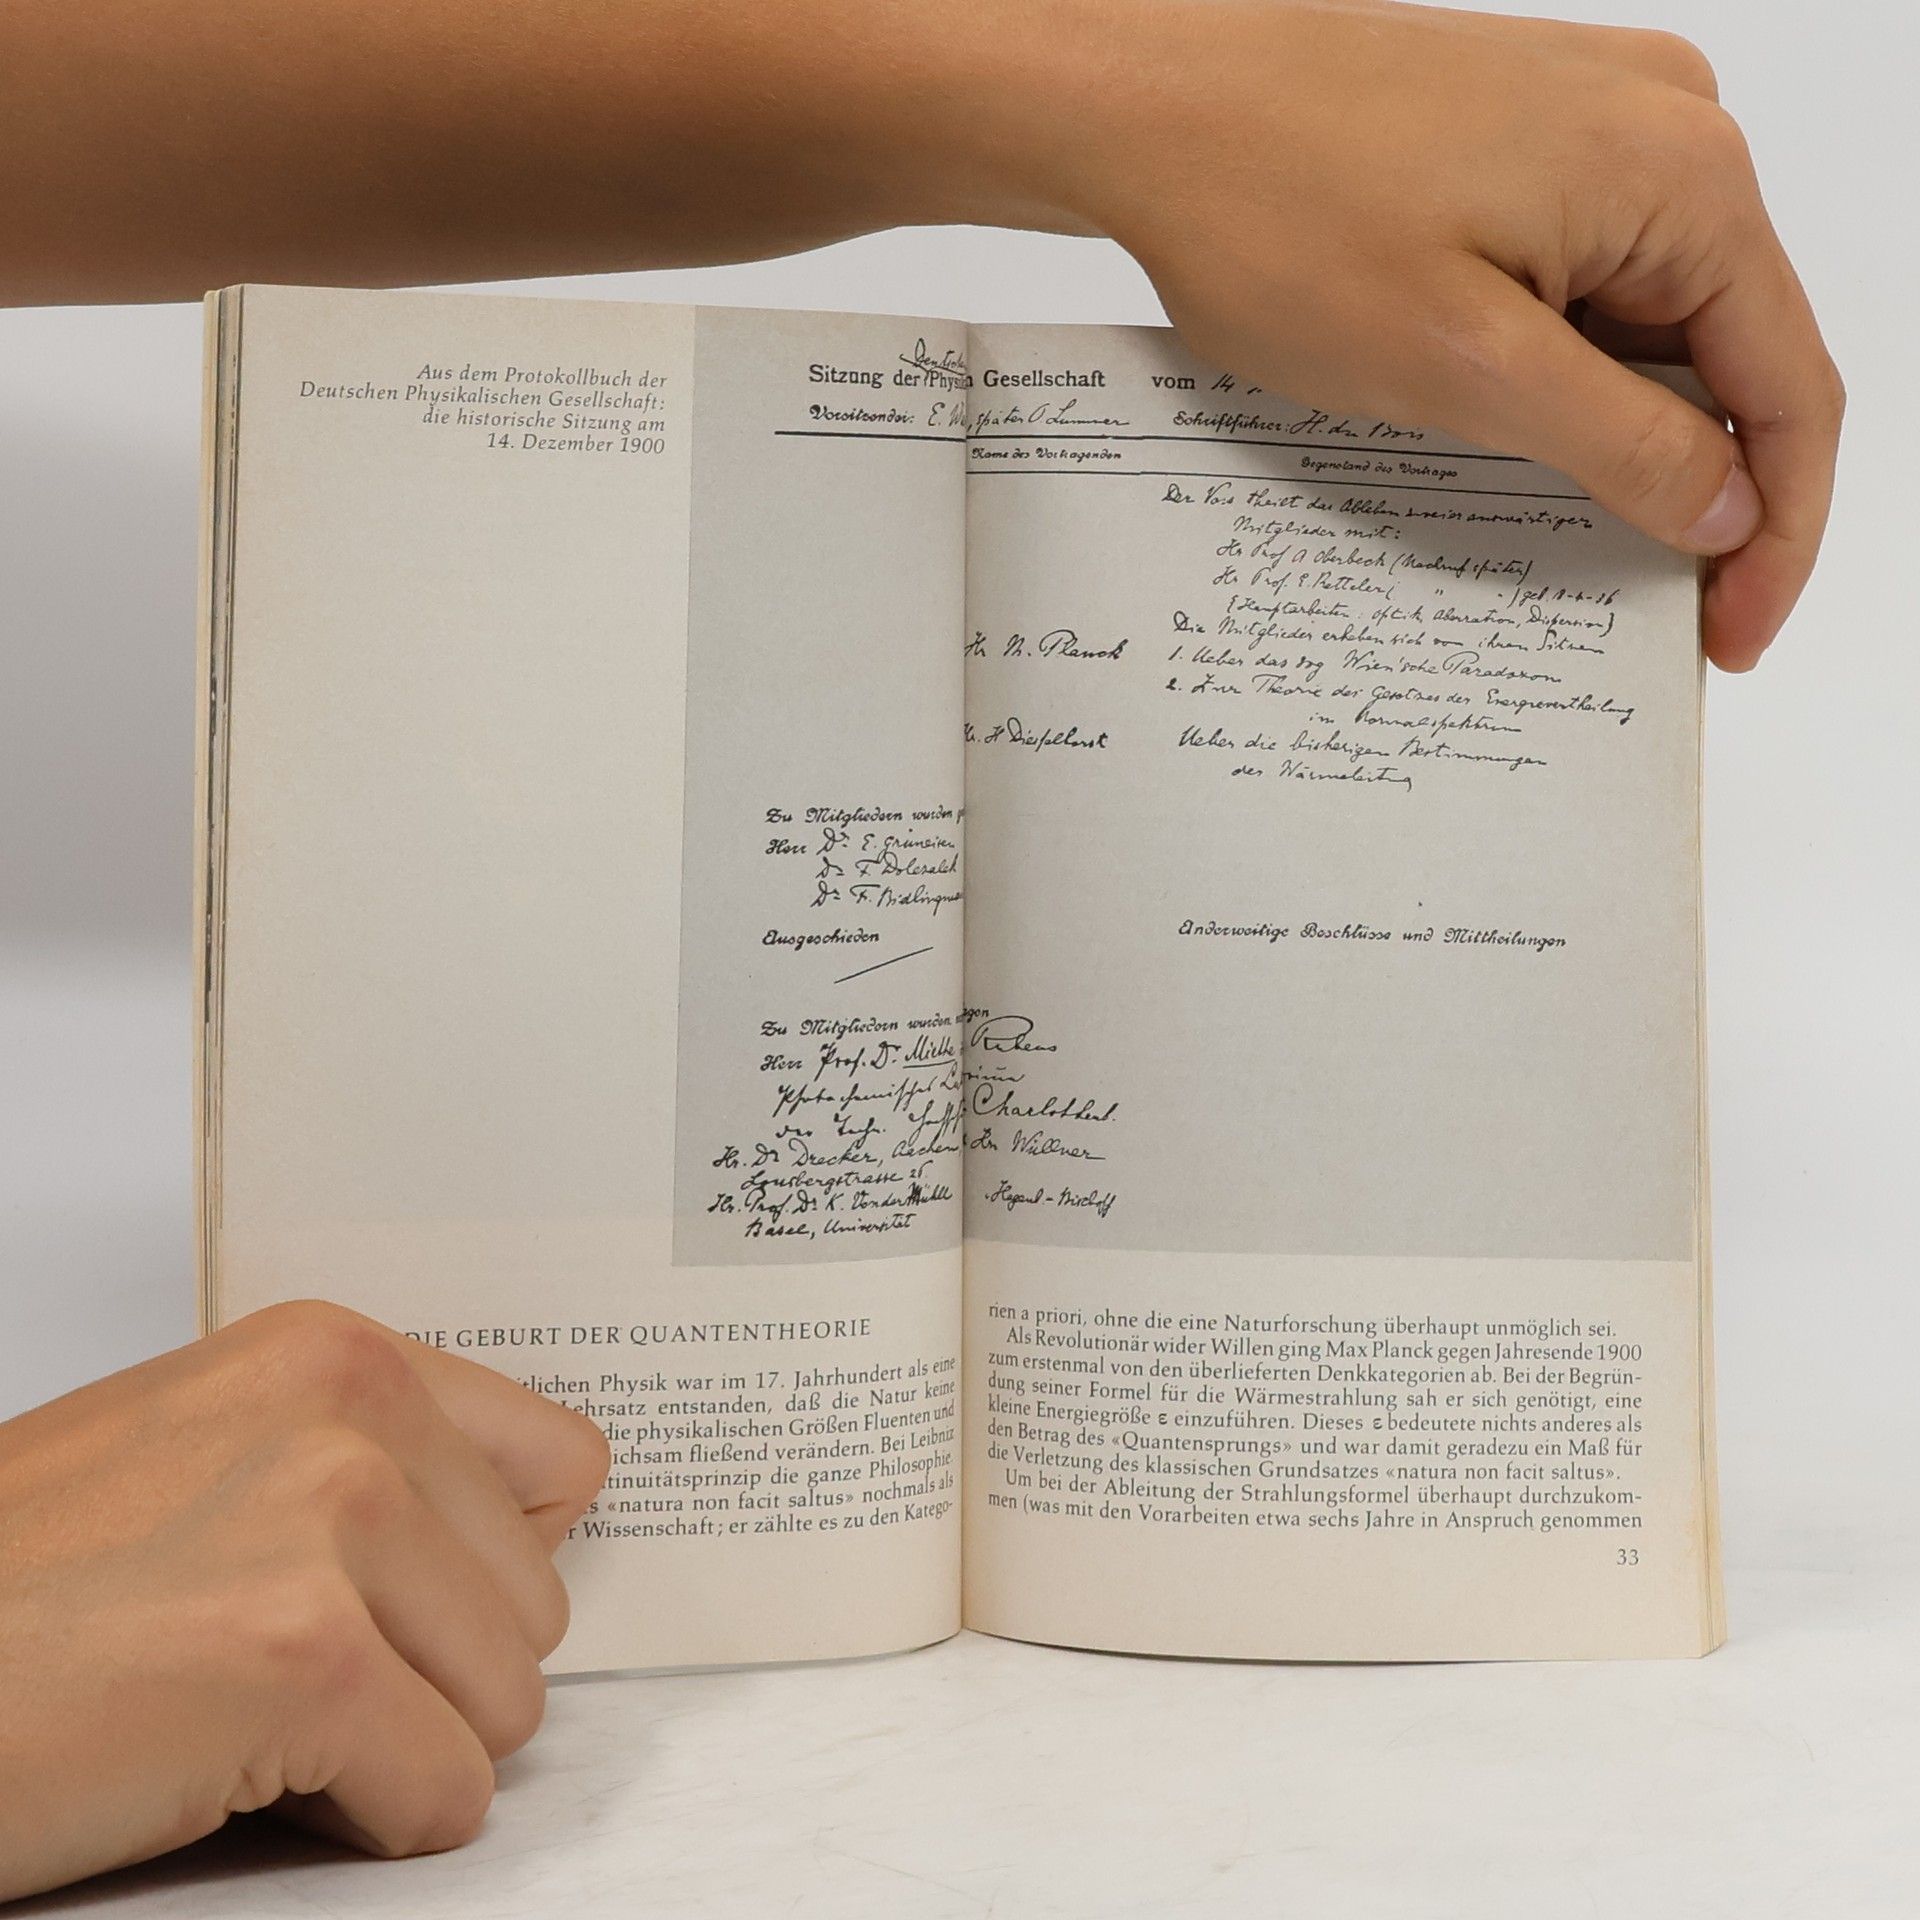 Aus dem Protokollbuch der
Deutschen Physikalischen Gesellschaft:
die historische Sitzung am
14. Dezember 1900
Deutsche
Sitzung der Physik Gesellschaft vom 14
Vorsitzender: E. später O Lummer Schriftführer: H. du Bois
Name des Vortragenden Gegenstand des Vortrages
Der Vors theilt das Ableben zweier auswärtiger
Mitglieder mit:
Hr Prof A Oberbeck (Nachruf später)
Hr Prof. E. Ketteler ( " " )
{Hauptarbeiten: Optik, Aberration, Dispersion}
Die Mitglieder erheben sich von ihren Sitzen
Hr M. Planck 1. Ueber das sog Wien'sche Paradoxon
2. Zur Theorie des Gesetzes der Energievertheilung
im Normalspektrum
Hr. H Diesselhorst Ueber die bisherigen Bestimmungen
der Wärmeleitung
Zu Mitgliedern wurden
Herr Dr E. Grüneisen
Dr F. Dolezalek
Dr F. Bidlingmai
Ausgeschieden
Anderweitige Beschlüsse und Mittheilungen
Zu Mitgliedern wurden
Herr Prof. Dr. Miethe Rubens
Photochemisches
der Techn. Charlottenb.
Hr. Dr Drecker, Aachen, Hrn Wüllner
Lousbergstrasse 26.
Hr. Prof. Dr K. VonderMühll Hagenb.-Bischoff
Basel, Universität
DIE GEBURT DER QUANTENTHEORIE
tlichen Physik war im 17. Jahrhundert als eine
Lehrsatz entstanden, daß die Natur keine
die physikalischen Größen Fluenten und
ichsam fließend verändern. Bei Leibniz
tinuitätsprinzip die ganze Philosophie.
s «natura non facit saltus» nochmals als
r Wissenschaft; er zählte es zu den Katego-
rien a priori, ohne die eine Naturforschung überhaupt unmöglich sei.
Als Revolutionär wider Willen ging Max Planck gegen Jahresende 1900
zum erstenmal von den überlieferten Denkkategorien ab. Bei der Begrün-
dung seiner Formel für die Wärmestrahlung sah er sich genötigt, eine
kleine Energiegröße ε einzuführen. Dieses ε bedeutete nichts anderes als
den Betrag des «Quantensprungs» und war damit geradezu ein Maß für
die Verletzung des klassischen Grundsatzes «natura non facit saltus».
Um bei der Ableitung der Strahlungsformel überhaupt durchzukom-
men (was mit den Vorarbeiten etwa sechs Jahre in Anspruch genommen
33